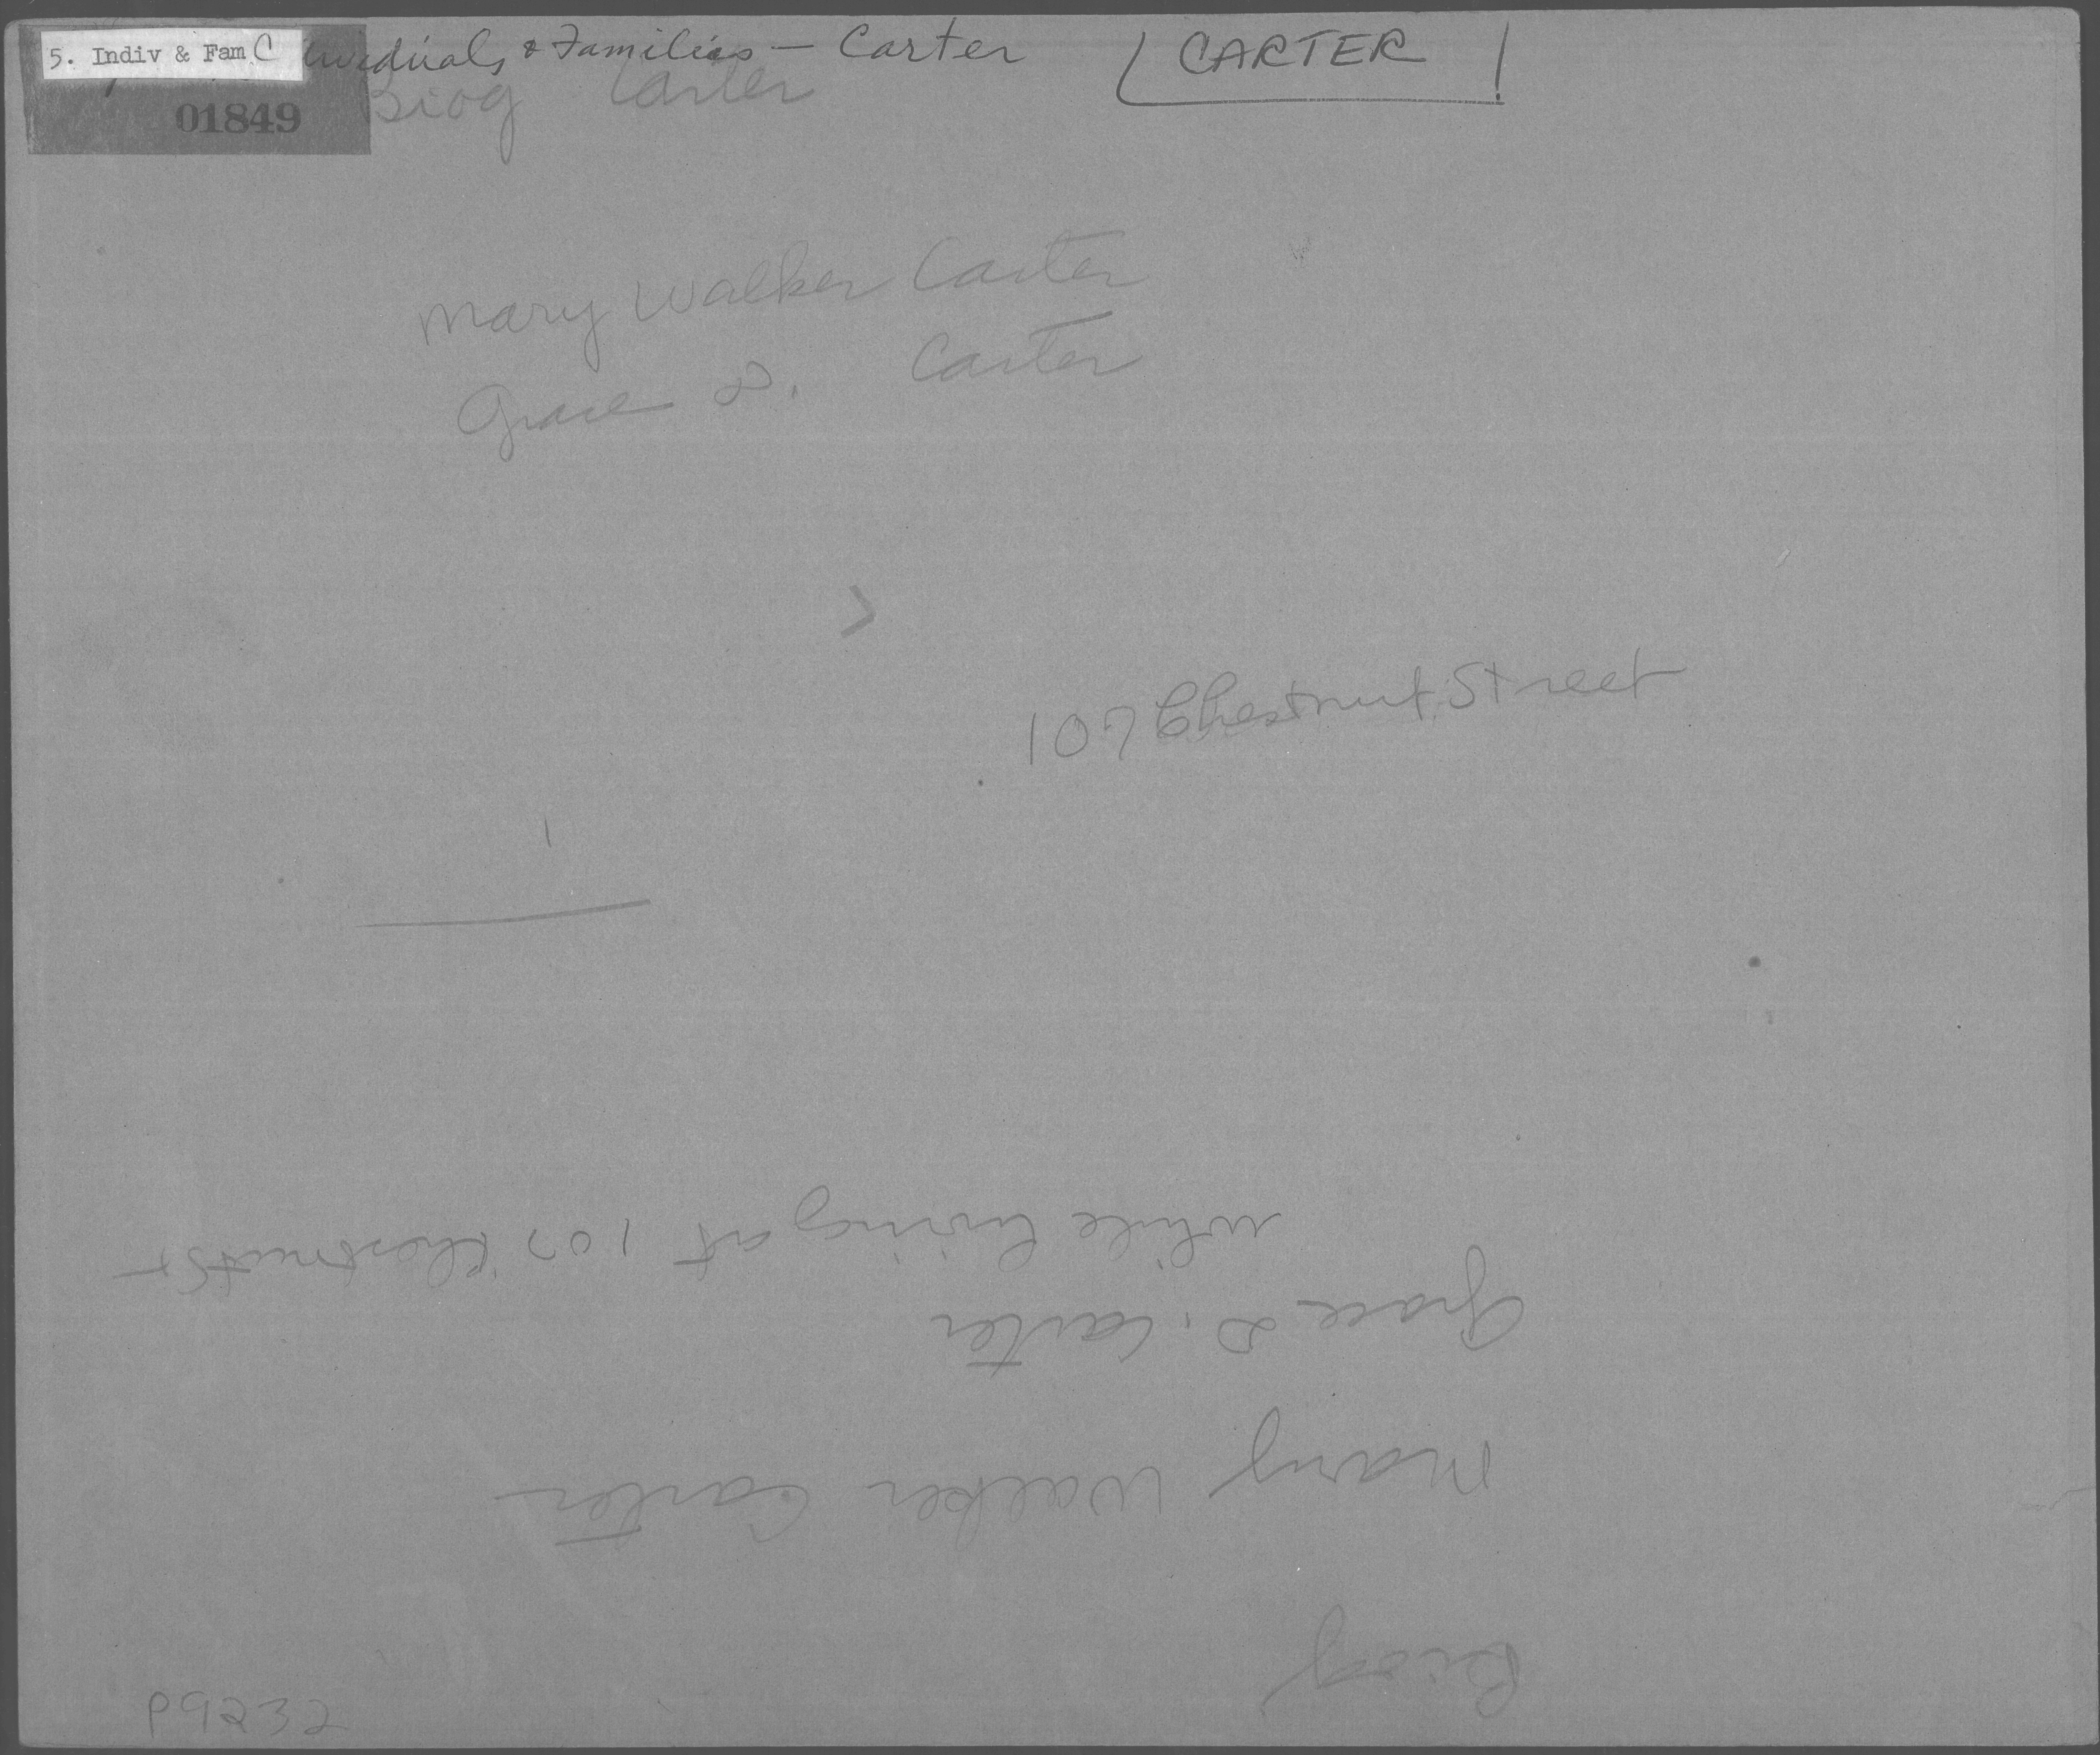 5. Indiv & Fam C
ividuals & Families — Carter
CARTER
01849
Biog Carter
Mary Walker Carter
Grace D. Carter
107 Chestnut Street
Biog
Mary Walker Carter
Grace D. Carter
while living at 107 Chestnut St
P9232